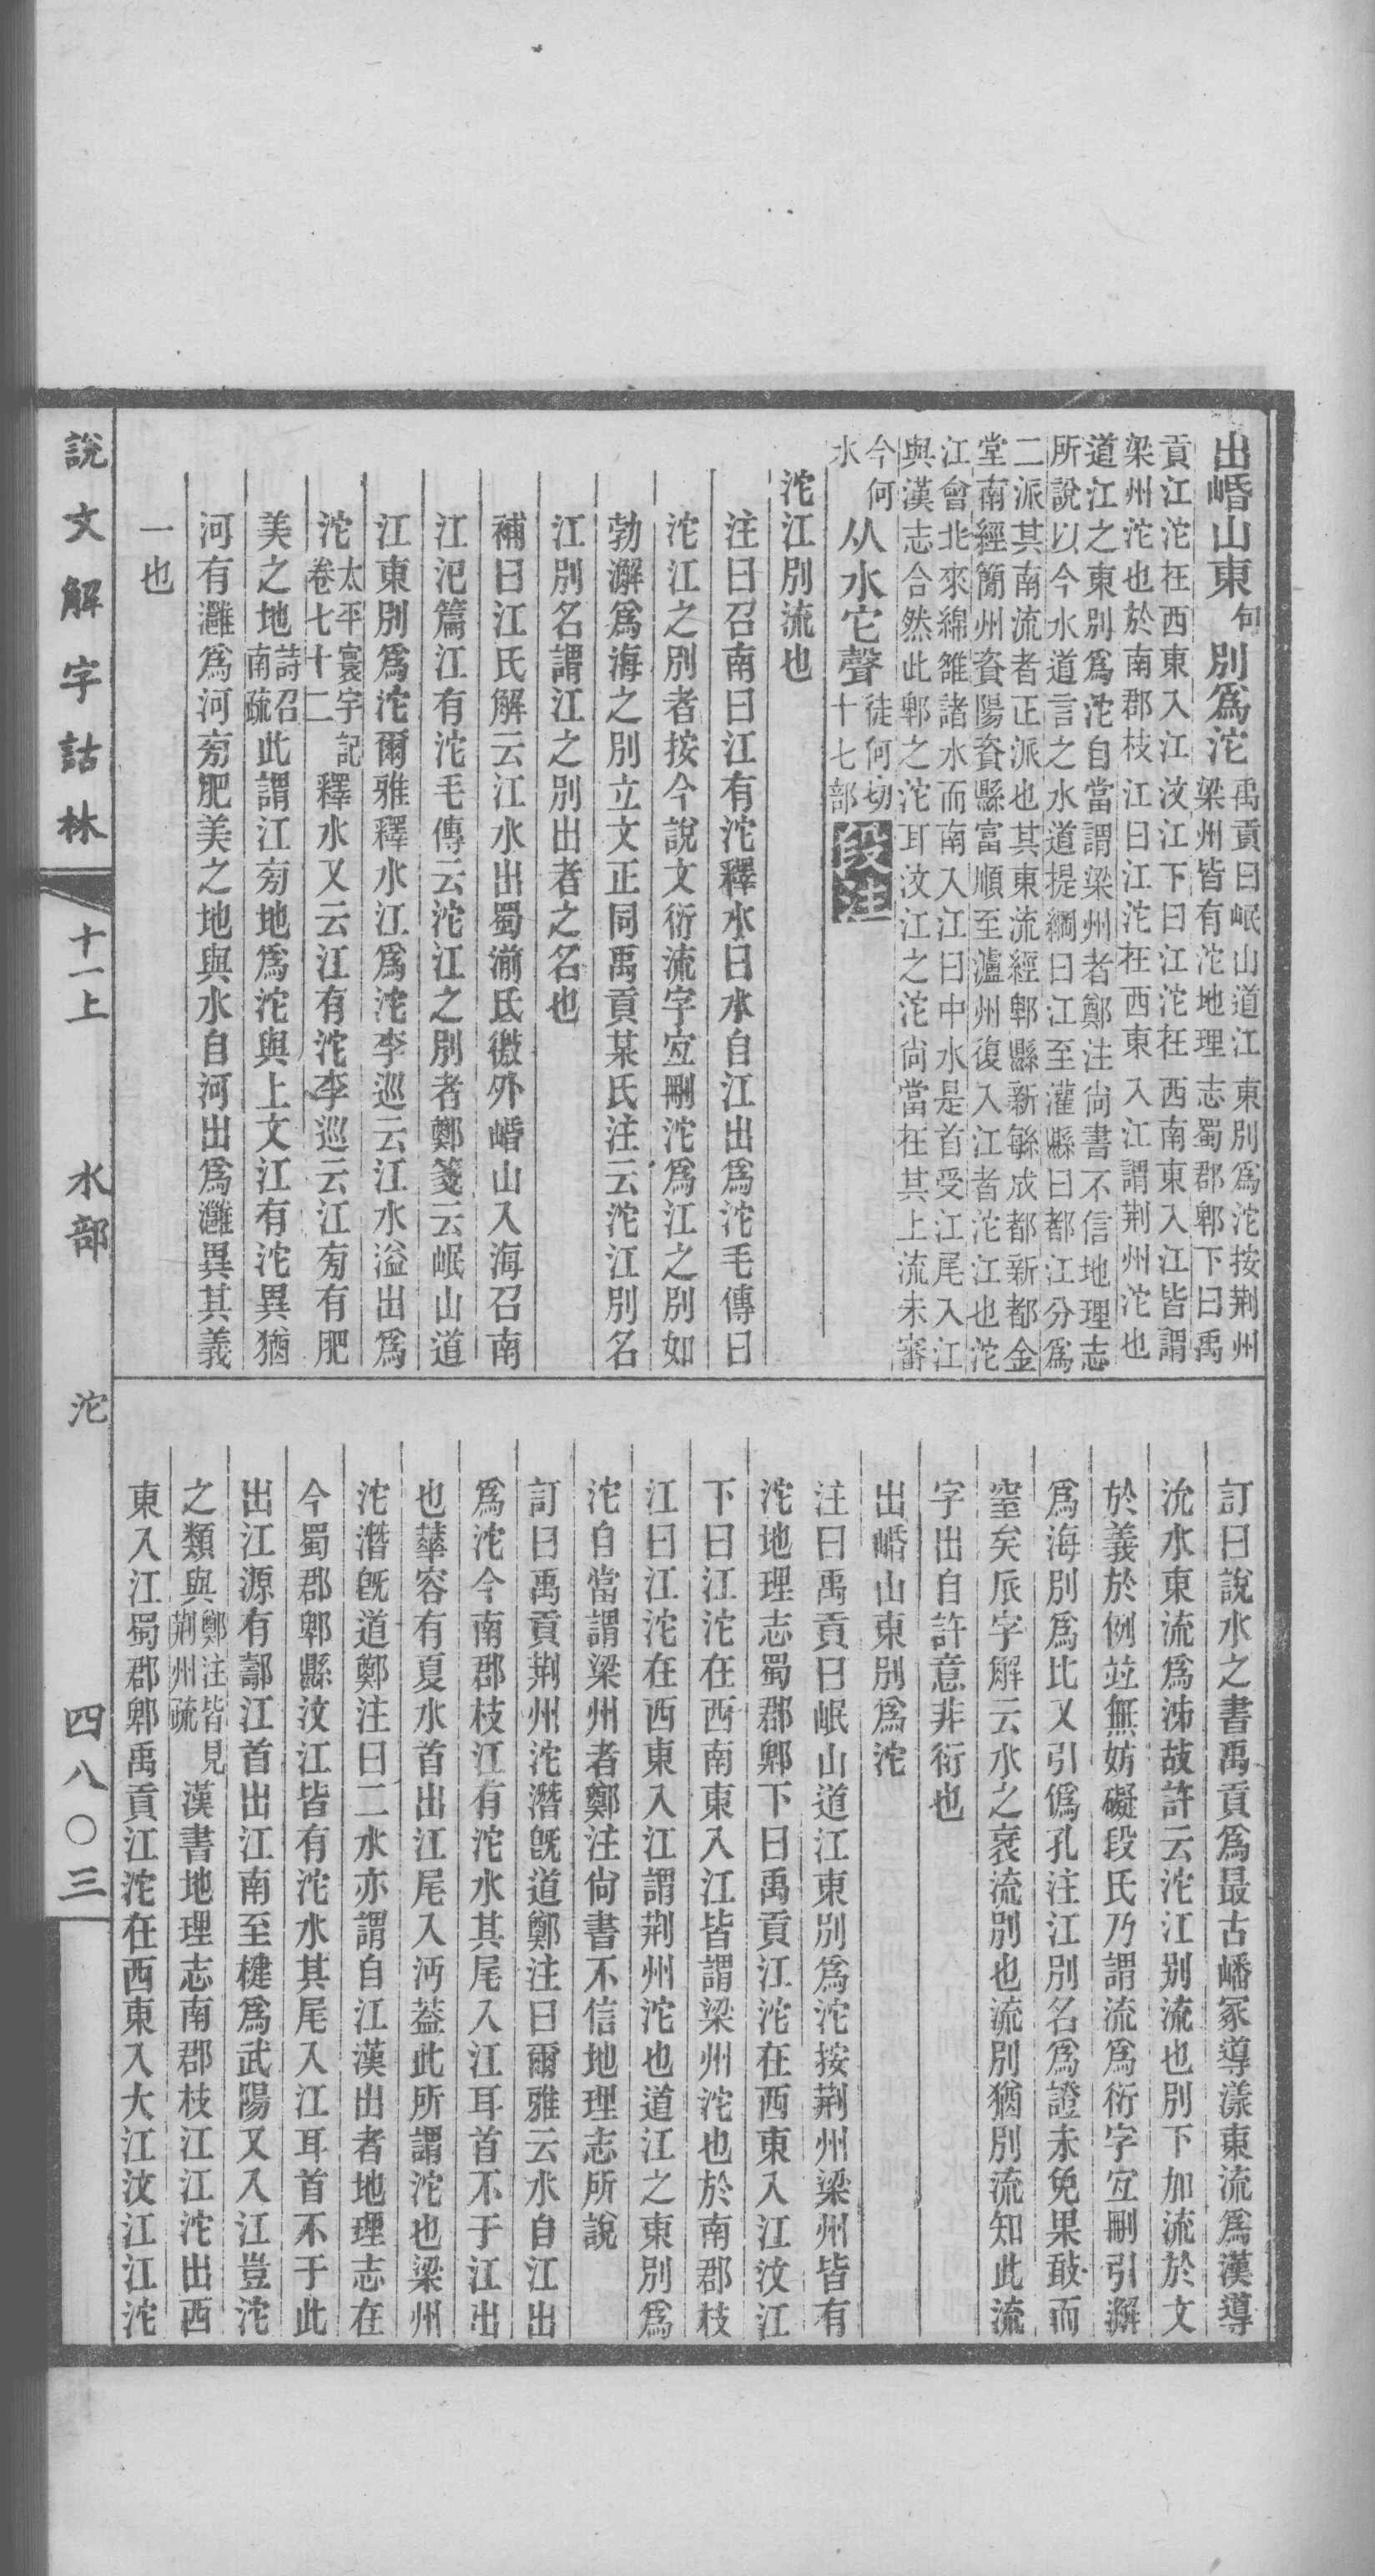 出崏山東句別爲沱禹貢曰岷山道江東別爲沱按荆州
梁州皆有沱地理志蜀郡郫下曰禹
貢江沱在西東入江汶江下曰江沱在西南東入江皆謂
梁州沱也於南郡枝江曰江沱在西東入江謂荆州沱也
道江之東別爲沱自當謂梁州者鄭注尙書不信地理志
所說以今水道言之水道提綱曰江至灌縣曰都江分爲
二派其南流者正派也其東流經郫縣新繁成都新都金
堂南經簡州資陽資縣富順至瀘州復入江者沱江也沱
江會北來綿雒諸水而南入江曰中水是首受江尾入江
與漢志合然此郫之沱耳汶江之沱尙當在其上流未審
今何
水
从水它聲徒何切
十七部段注
沱江別流也
注曰召南曰江有沱釋水曰水自江出爲沱毛傳曰
沱江之別者按今說文衍流字宜刪沱爲江之別如
勃澥爲海之別立文正同禹貢某氏注云沱江別名
江別名謂江之別出者之名也
補曰江氏解云江水出蜀湔氐徼外崏山入海召南
江汜篇江有沱毛傳云沱江之別者鄭箋云岷山道
江東別爲沱爾雅釋水江爲沱李巡云江水溢出爲
沱太平寰宇記
卷七十二釋水又云江有沱李巡云江旁有肥
美之地詩召
南疏此謂江旁地爲沱與上文江有沱異猶
河有灉爲河旁肥美之地與水自河出爲灉異其義
一也
訂曰說水之書禹貢爲最古嶓冢導漾東流爲漢導
沇水東流爲泲故許云沱江别流也別下加流於文
於義於例竝無妨礙段氏乃謂流爲衍字宜刪引澥
爲海別爲比又引僞孔注江別名爲證未免果敢而
窒矣𠂢字解云水之衺流別也流別猶別流知此流
字出自許意非衍也
出崏山東別爲沱
注曰禹貢曰岷山道江東別爲沱按荆州梁州皆有
沱地理志蜀郡郫下曰禹貢江沱在西東入江汶江
下曰江沱在西南東入江皆謂梁州沱也於南郡枝
江曰江沱在西東入江謂荆州沱也道江之東別爲
沱自當謂梁州者鄭注尙書不信地理志所說
訂曰禹貢荆州沱潛旣道鄭注曰爾雅云水自江出
爲沱今南郡枝江有沱水其尾入江耳首不于江出
也華容有夏水首出江尾入沔葢此所謂沱也梁州
沱潛旣道鄭注曰二水亦謂自江漢出者地理志在
今蜀郡郫縣汶江皆有沱水其尾入江耳首不于此
出江源有𨝸江首出江南至犍爲武陽又入江豈沱
之類與鄭注皆見
荆州疏漢書地理志南郡枝江江沱出西
東入江蜀郡郫禹貢江沱在西東入大江汶江江沱
說文解字詁林
十一上
水部
沱
四八〇三